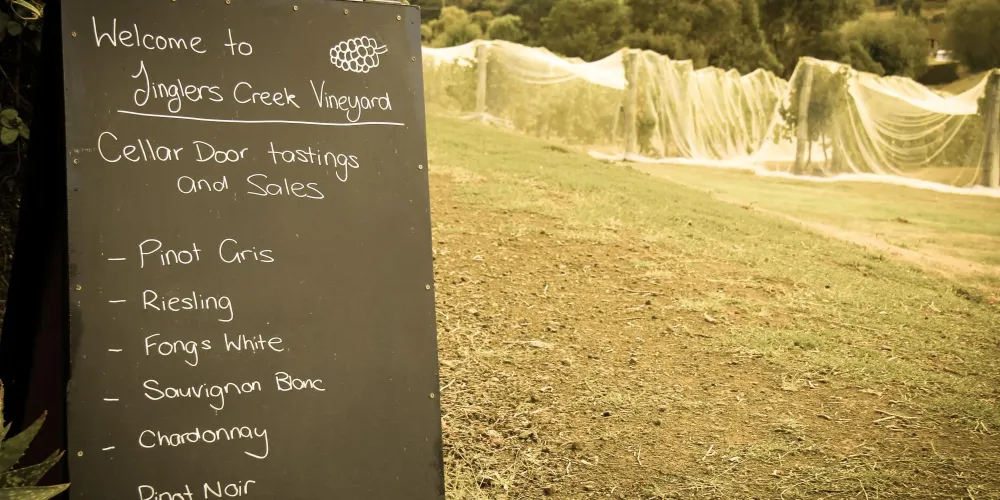 Welcome to
Jinglers Creek Vineyard
Cellar Door tastings
and Sales
– Pinot Gris
– Riesling
– Fongs White
– Sauvignon Blanc
– Chardonnay
Pinot Noir